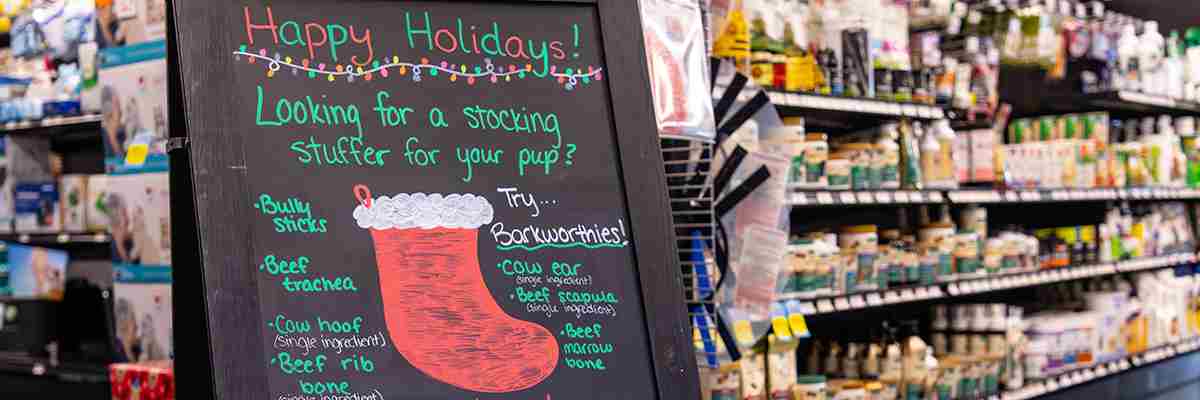 Happy Holidays!
Looking for a stocking
stuffer for your pup?
Try...
Barkworthies!
•Bully
sticks
•Beef
trachea
•Cow hoof
(single ingredient)
•Beef rib
bone
(single ingredient)
•Cow ear
(single ingredient)
•Beef scapula
(single ingredient)
•Beef
marrow
bone